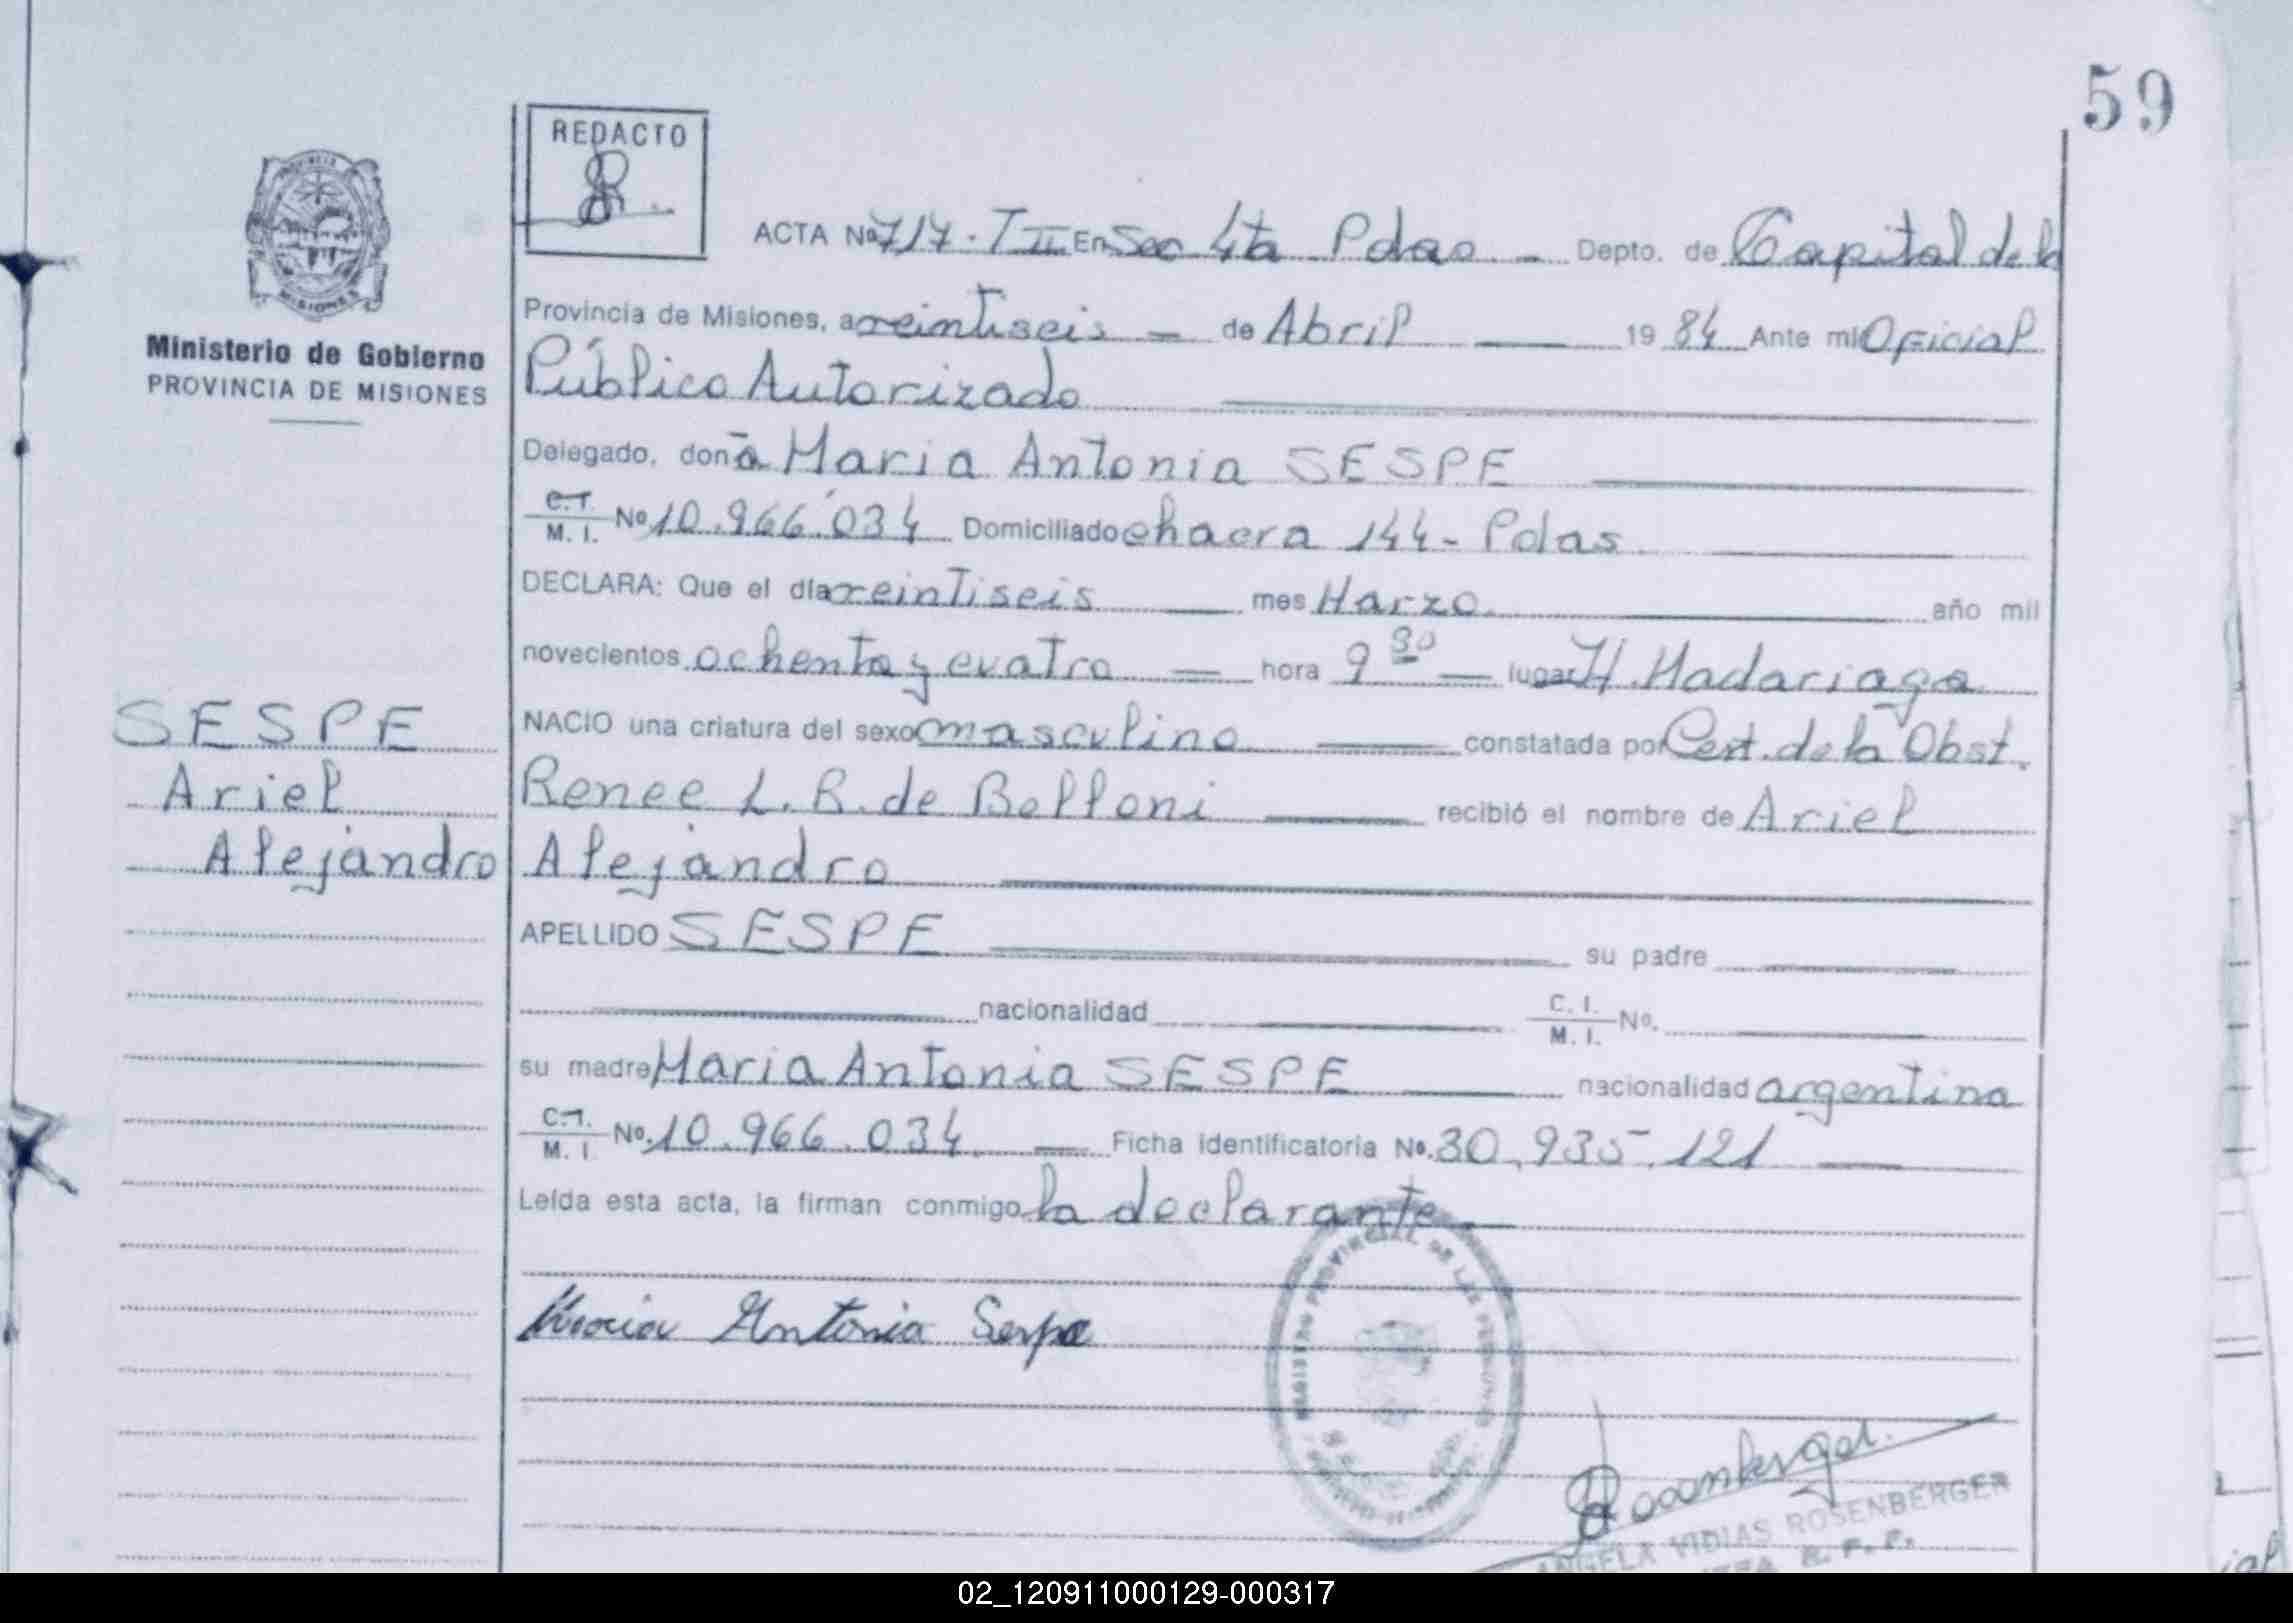 59
REDACTO
ACTA Nº 717. T II En Sec 4ta Pdas Depto. de Capital de la
Provincia de Misiones, a veintiseis de Abril 19 84 Ante mi Oficial
Público Autorizado
Delegado, doña Maria Antonia SESPE
C.I. M. I. Nº 10.966.034 Domiciliado chacra 144 - Pdas
DECLARA: Que el día veintiseis mes Marzo año mil
novecientos ochenta y cuatro hora 9 30 lugar H. Madariaga
NACIO una criatura del sexo masculino constatada por Cert. de la Obst.
Renee L. B. de Belloni recibió el nombre de Ariel
Alejandro
APELLIDO SESPE su padre
nacionalidad C. I. M. I. Nº.
su madre Maria Antonia SESPE nacionalidad argentina
C.I. M. I. Nº. 10.966.034 Ficha identificatoria Nº. 30.935.121
Leída esta acta, la firman conmigo la declarante
Maria Antonia Serpe
REGISTRO PROVINCIAL DE LAS PERSONAS
ANGELA VIDIAS ROSENBERGER
PROVINCIA
MISIONES
Ministerio de Gobierno
PROVINCIA DE MISIONES
SESPE
Ariel
Alejandro
02_120911000129-000317